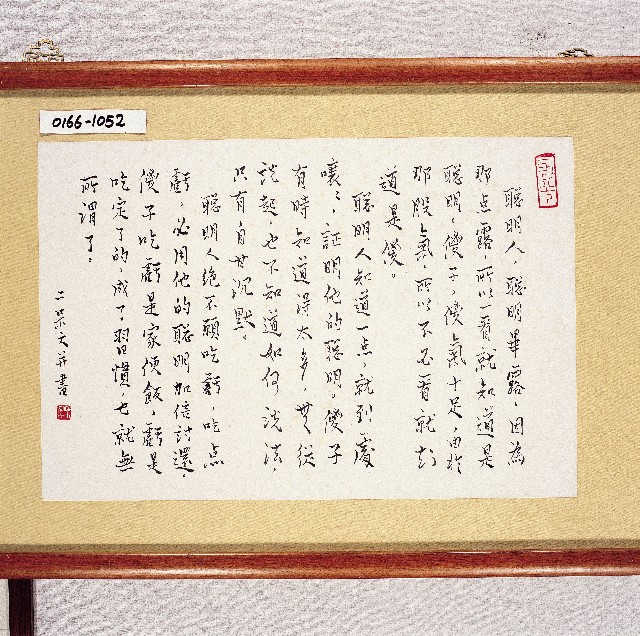 0166-1052
聰明人，聰明畢露，因為
那点露，所以一看就知道是
聰明，傻子，傻氣十足，由於
那股氣，所以不必看就知
道是傻。
聰明人知道一点，就到處
嚷嚷，証明他的聰明。傻子
有時知道得太多，無從
說起，也不知道如何說法，
只有自甘沉默。
聰明人絕不願吃虧，吃点
虧，必用他的聰明加倍討還。
傻子吃虧是家便飯，虧是
吃定了的，成了習慣，也就無
所謂了。
文并書